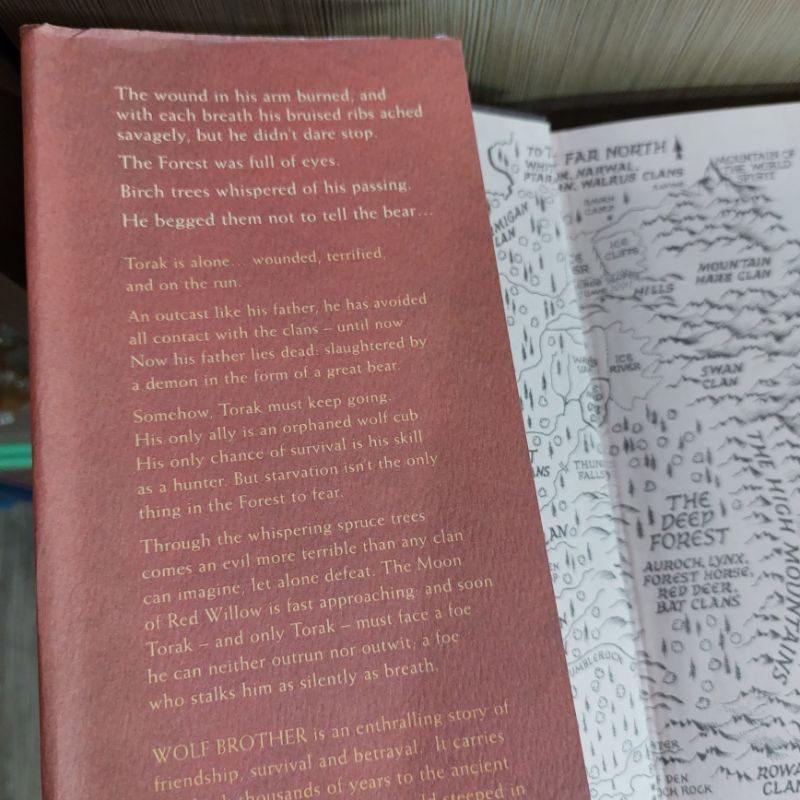 The wound in his arm burned, and
with each breath his bruised ribs ached
savagely, but he didn't dare stop.
The Forest was full of eyes.
Birch trees whispered of his passing.
He begged them not to tell the bear...
Torak is alone... wounded, terrified,
and on the run.
An outcast like his father, he has avoided
all contact with the clans – until now.
Now his father lies dead: slaughtered by
a demon in the form of a great bear.
Somehow, Torak must keep going.
His only ally is an orphaned wolf cub.
His only chance of survival is his skill
as a hunter. But starvation isn't the only
thing in the Forest to fear.
Through the whispering spruce trees
comes an evil more terrible than any clan
can imagine, let alone defeat. The Moon
of Red Willow is fast approaching: and soon
Torak – and only Torak – must face a foe
he can neither outrun nor outwit; a foe
who stalks him as silently as breath.
WOLF BROTHER is an enthralling story of
friendship, survival and betrayal. It carries
thousands of years to the ancient
steeped in
FAR NORTH
NARWAL,
WALRUS CLANS
MOUNTAIN OF
THE WORLD
SPIRIT
CAMP
ICE
CLIFFS
MOUNTAIN
HARE CLAN
HILLS
ICE
RIVER
SWAN
CLAN
FALLS
THE HIGH MOUNTAINS
THE
DEEP
FOREST
AUROCH, LYNX,
FOREST HORSE,
RED DEER,
BAT CLANS
ROCK